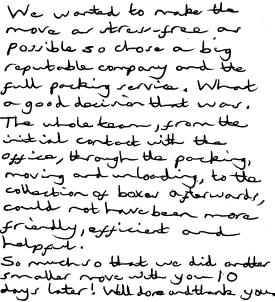 We wanted to make the
move as stress-free as
possible so chose a big
reputable company and the
full packing service. What
a good decision that was.
The whole team, from the
initial contact with the
office, through the packing,
moving and unloading, to the
collection of boxes afterwards,
could not have been more
friendly, efficient and
helpful.
So much so that we did another
smaller move with you 10
days later! Well done and thank you